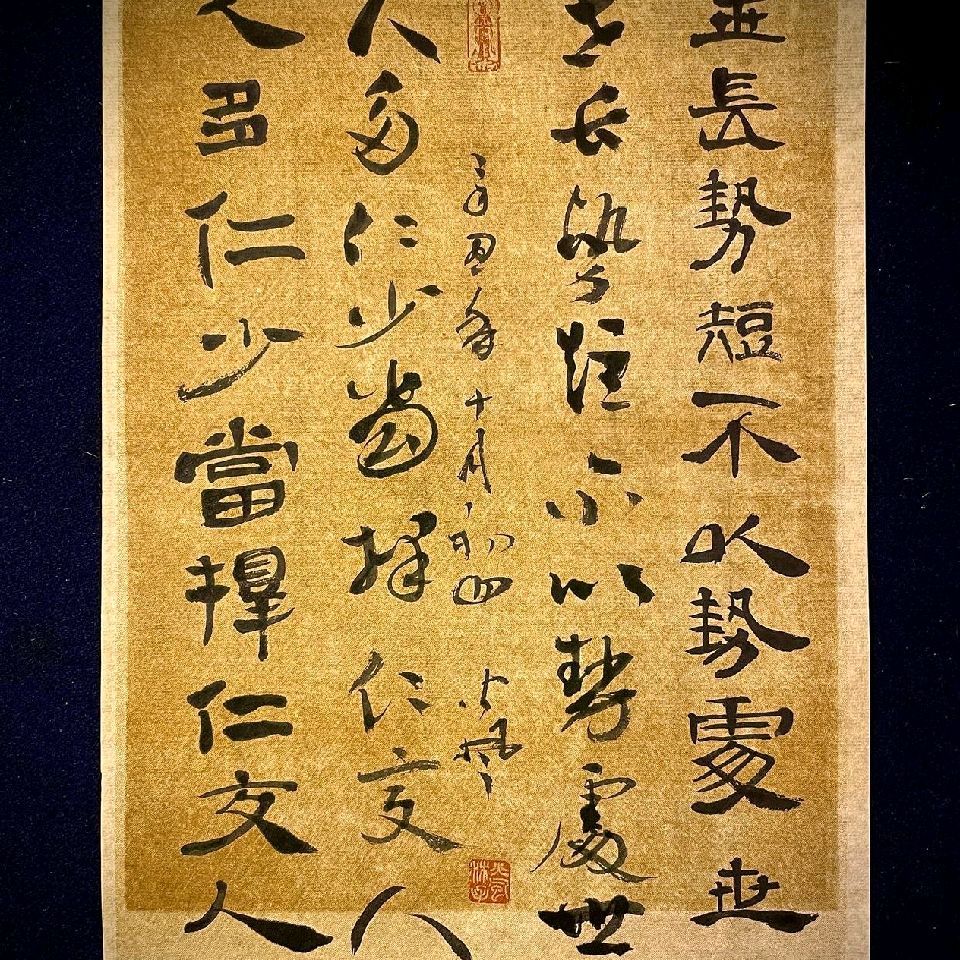 世長勢短不以勢處世
世長勢短不以勢處世
辛丑年十月初四
人多仁少當擇仁交人
人多仁少當擇仁交人